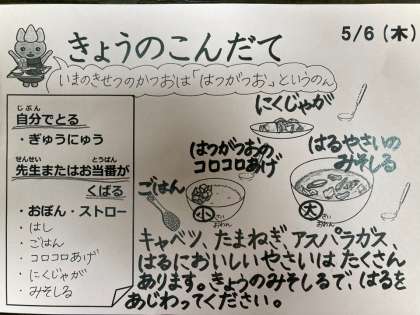 きょうのこんだて
5/6(木)
いまのきせつのかつおは「はつがつお」というのん
じぶん
自分でとる
・ぎゅうにゅう
せんせい とうばん
先生またはお当番が
くばる
・おぼん・ストロー
・はし
・ごはん
・コロコロあげ
・にくじゃが
・みそしる
にくじゃが
はつがつおの
コロコロあげ
はるやさいの
みそしる
ごはん
小さい
おわん
大きい
おわん
キャベツ、たまねぎ、アスパラガス、
はるにおいしいやさいは たくさん
あります。きょうのみそしるで、はるを
あじわってください。